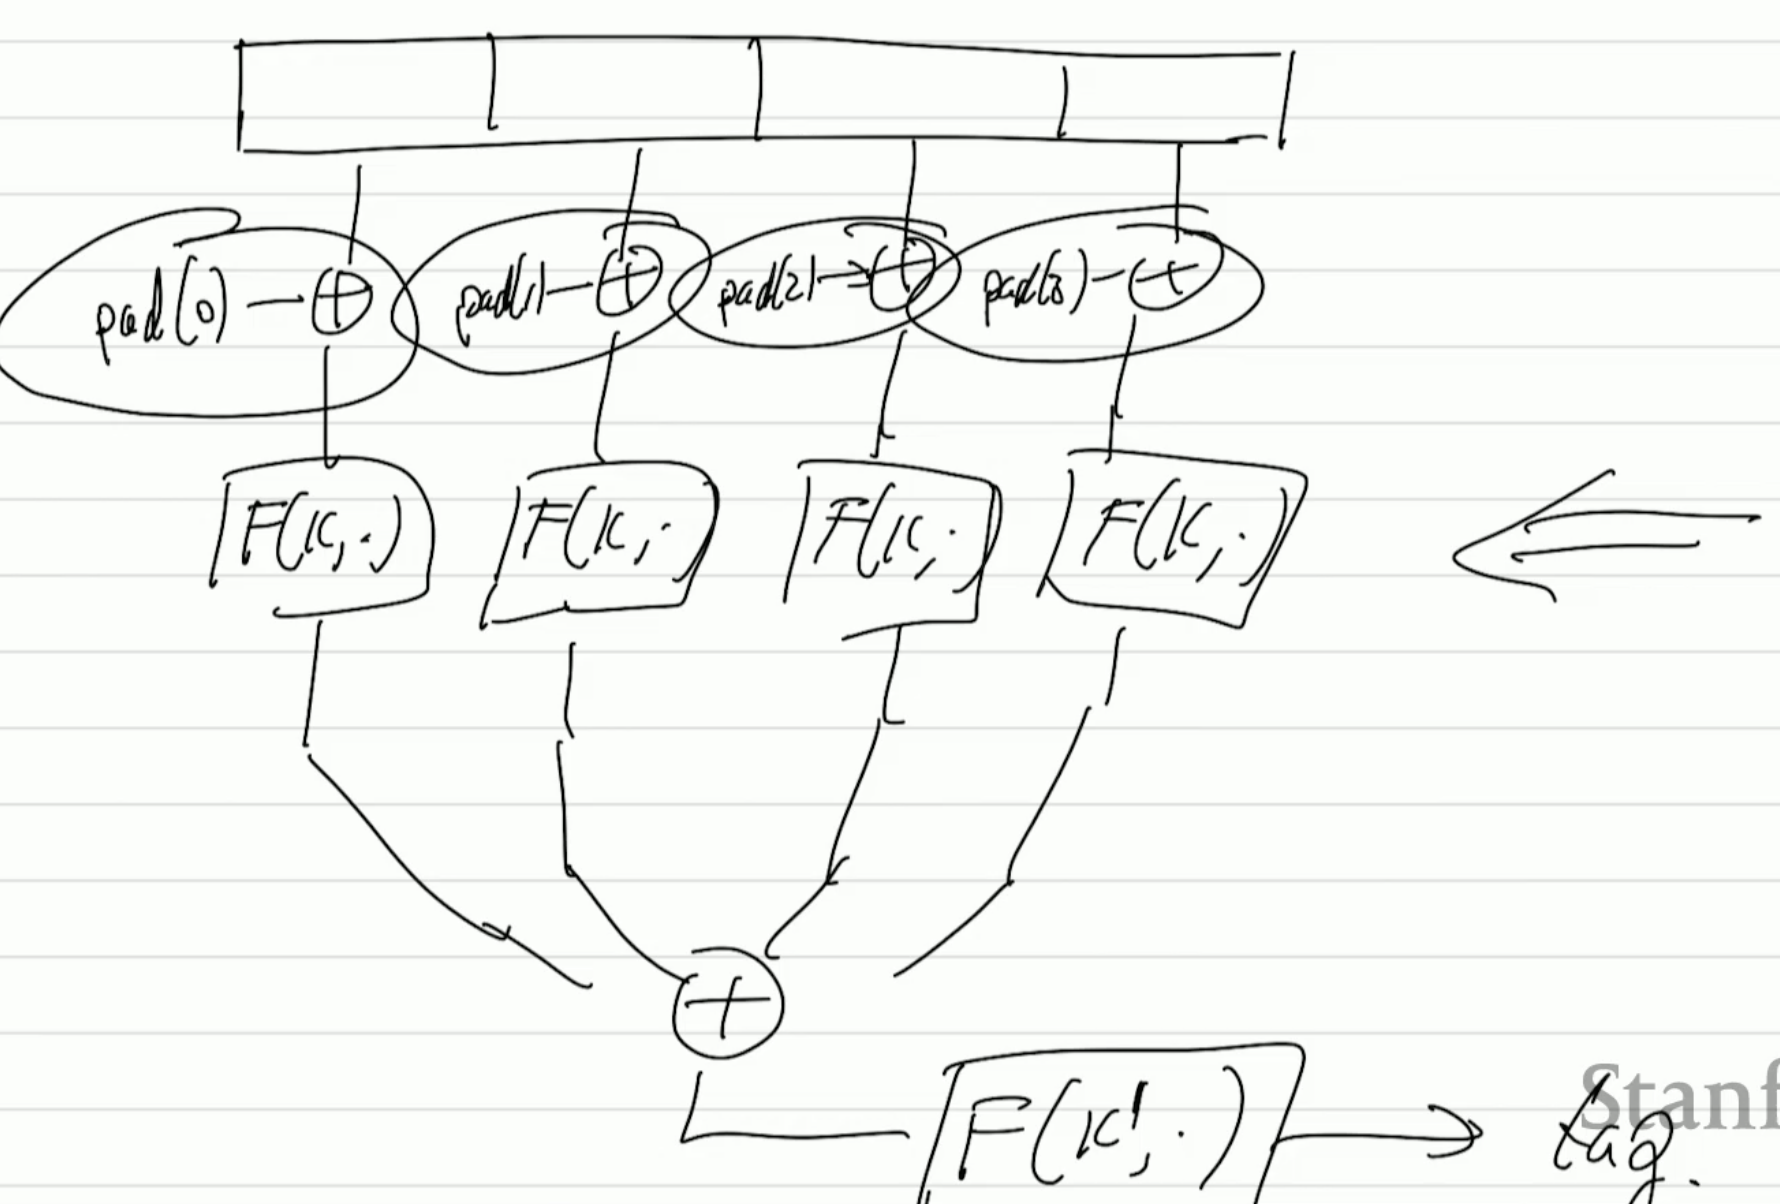 pad(0) → ⊕ pad(1) — ⊕ pad(2) → ⊕ pad(3) — ⊕
F(K, ·) F(K, ·) F(K, ·) F(K, ·)
⊕
F(K', ·) → tag.
Stanf